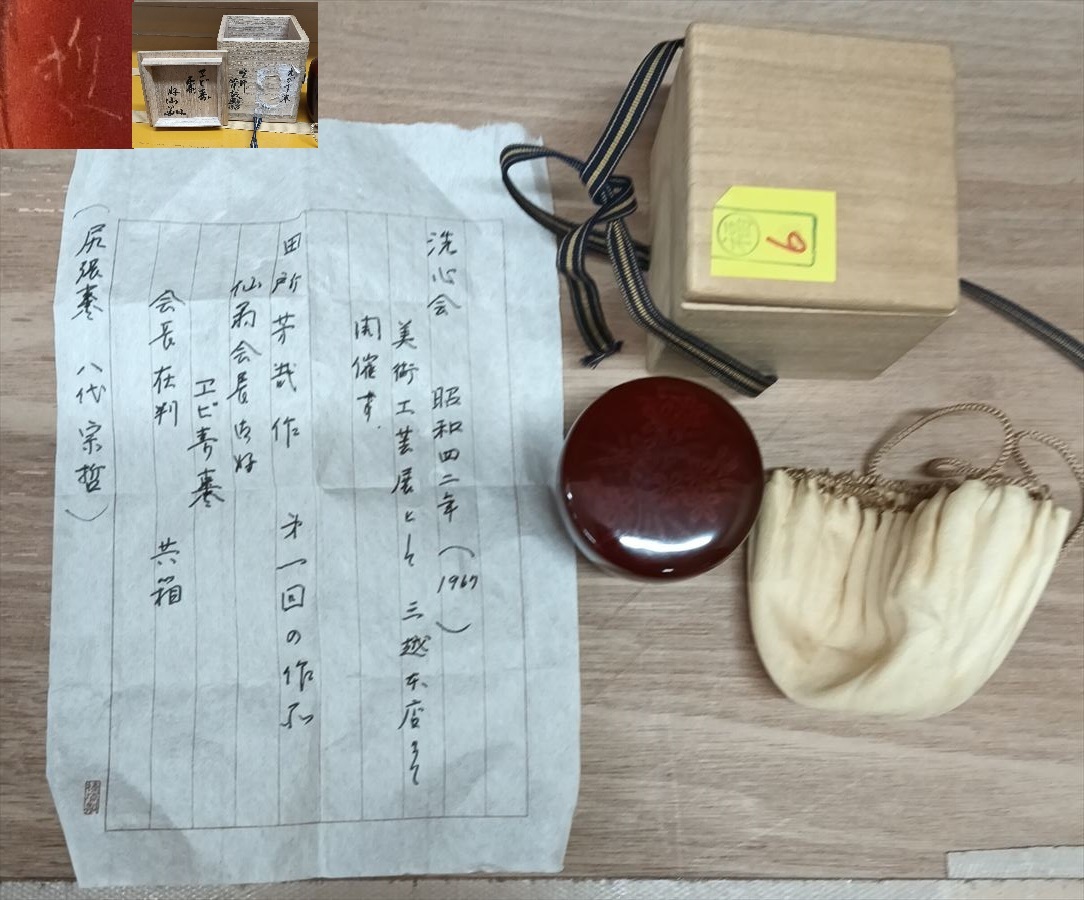 洗心会 昭和四二年(1967)
美術工芸展として 三越本店にて
開催す.
田所芳哉作 才一回の作品
仙翁会長御好
ヱビ寿棗
会長在判 共箱
(尻張棗 八代宗哲)
福
9
ヱビ寿